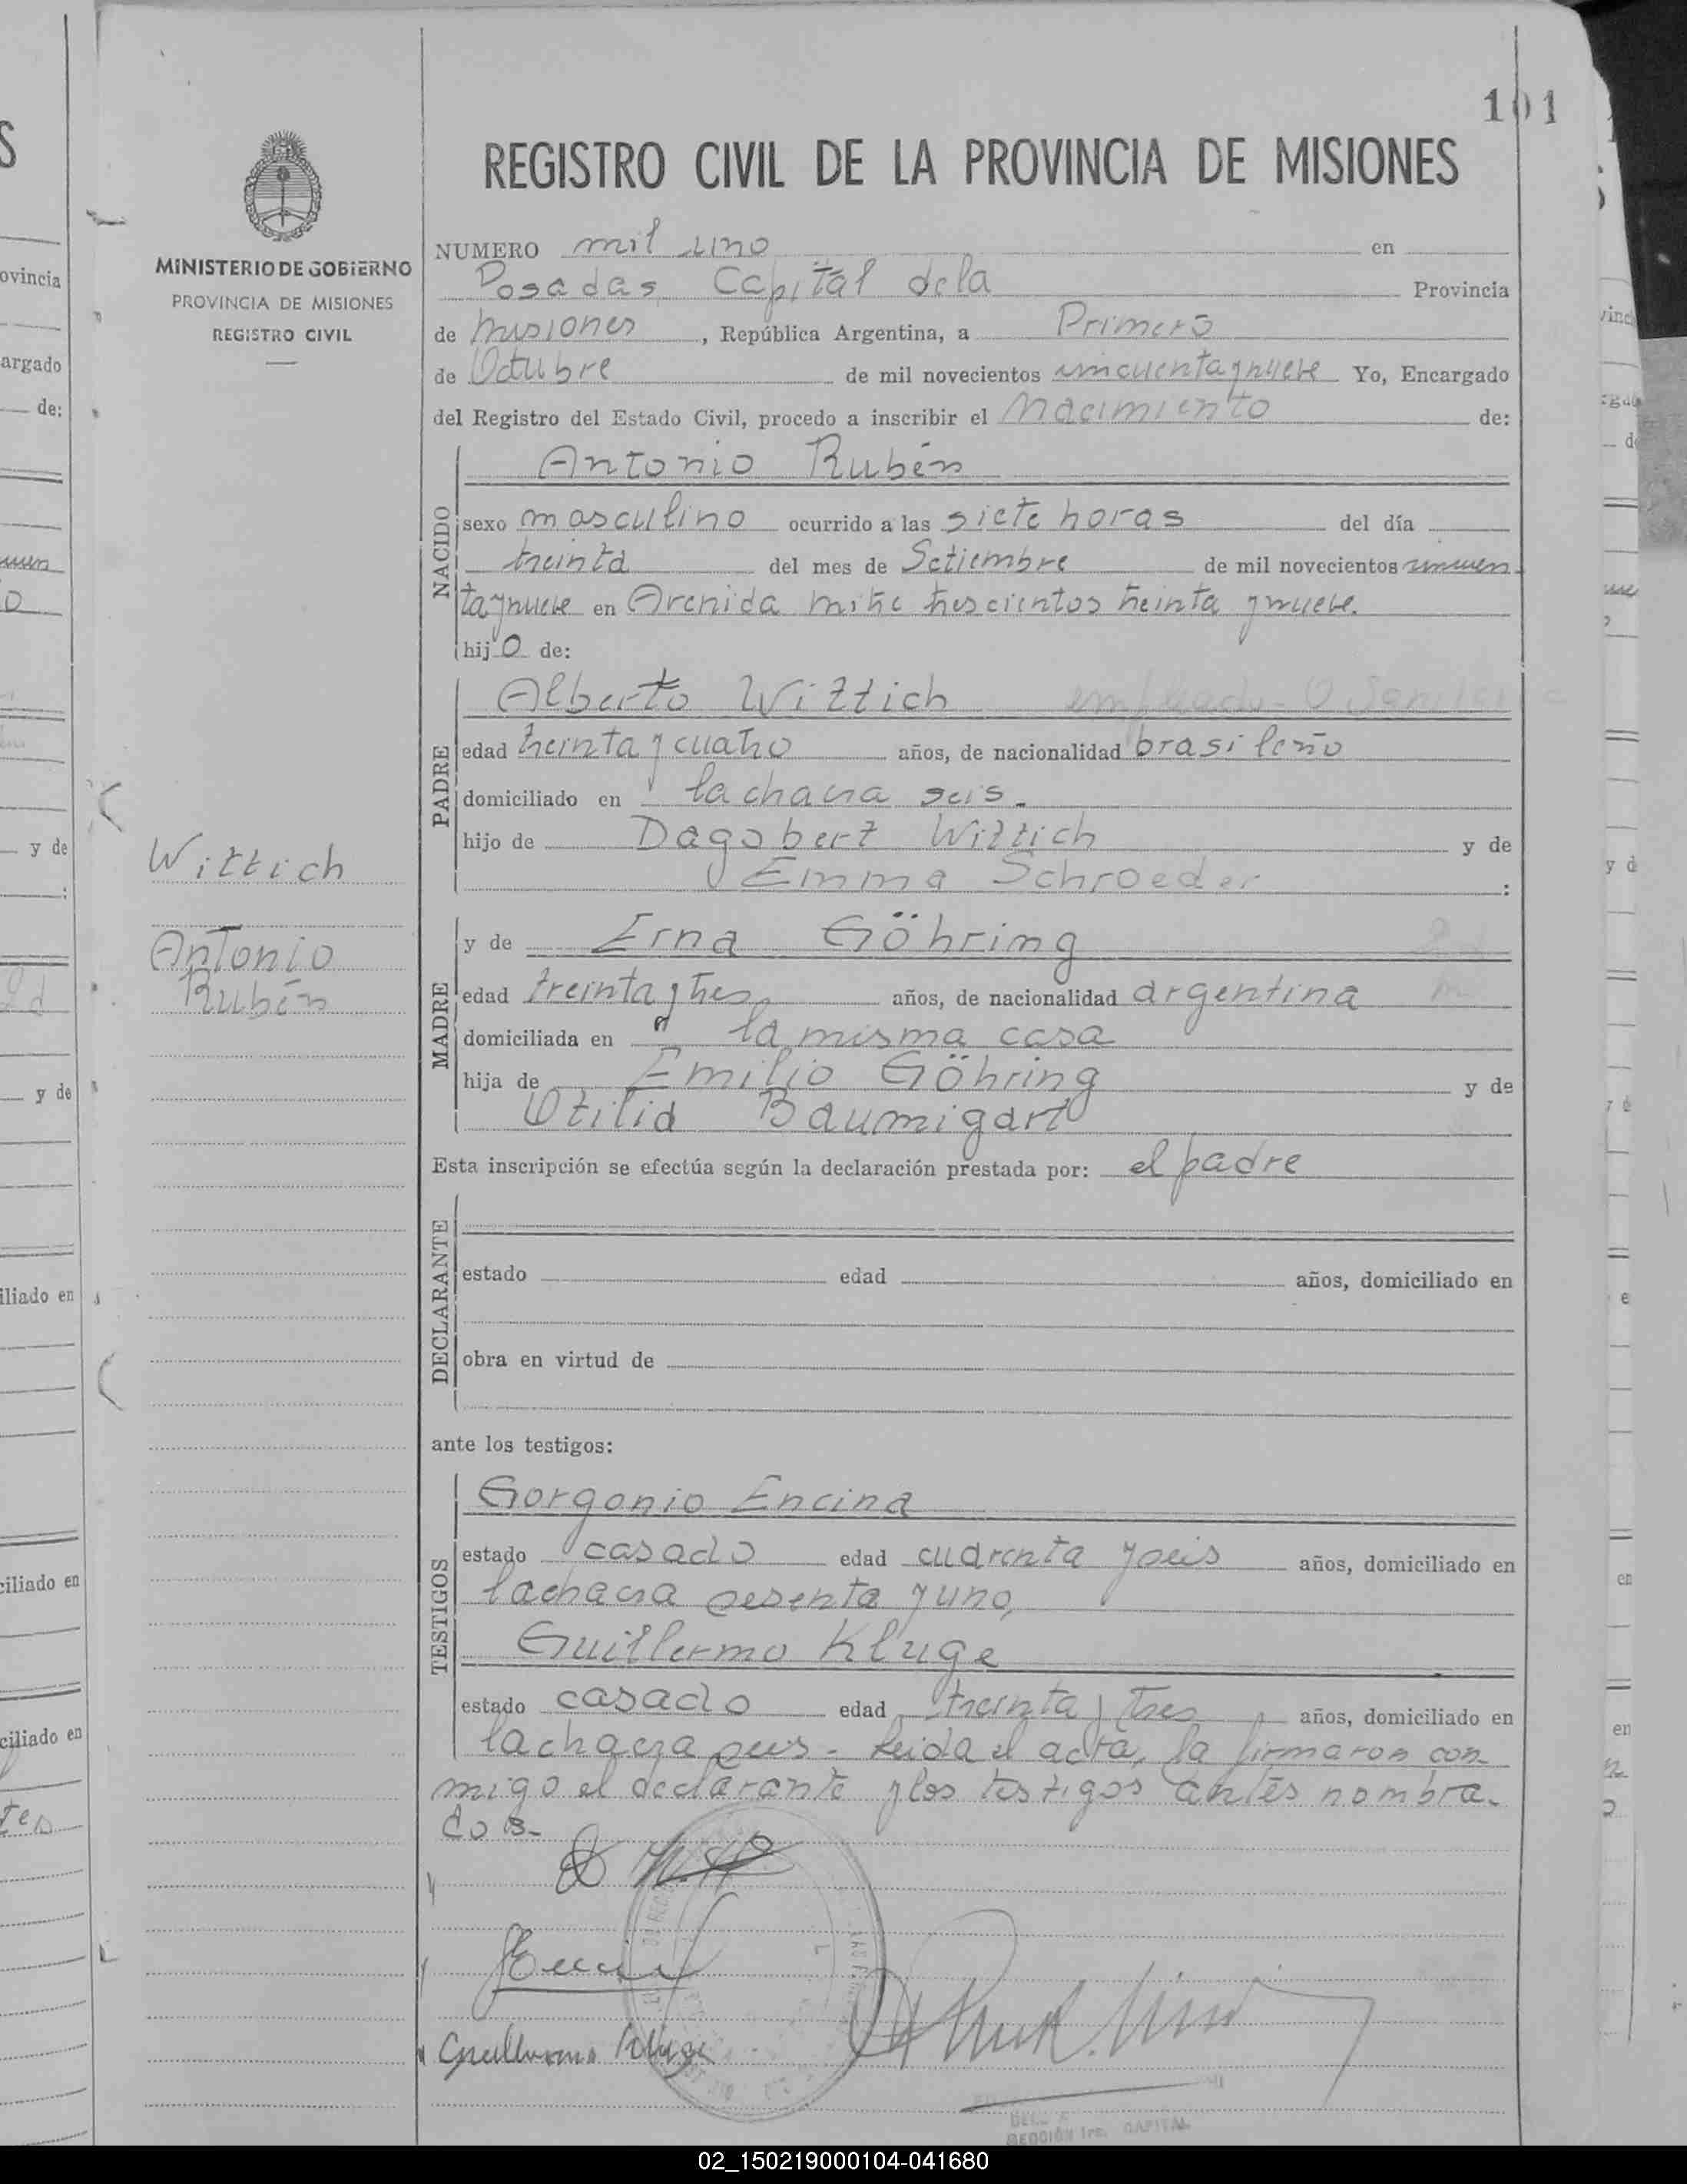 101
REGISTRO CIVIL DE LA PROVINCIA DE MISIONES
MINISTERIO DE GOBIERNO
PROVINCIA DE MISIONES
REGISTRO CIVIL
NUMERO mil uno en
Posadas Capital de la Provincia
de Misiones, República Argentina, a Primero
de Octubre de mil novecientos cincuenta y nueve Yo, Encargado
del Registro del Estado Civil, procedo a inscribir el Nacimiento de:
NACIDO
Antonio Rubén
sexo masculino ocurrido a las siete horas del día
treinta del mes de Setiembre de mil novecientos cincuen
ta y nueve en Avenida Mitre trescientos treinta y nueve.
hijo de:
PADRE
Alberto Wittich empleado
edad treinta y cuatro años, de nacionalidad brasileño
domiciliado en la chacra seis.
hijo de Dagobert Wittich y de
Emma Schroeder :
Wittich
Antonio
Rubén
MADRE
y de Erna Göhring
edad treinta y tres años, de nacionalidad argentina
domiciliada en la misma casa
hija de Emilio Göhring y de
Otilia Baumigart
Esta inscripción se efectúa según la declaración prestada por: el padre
DECLARANTE
estado edad años, domiciliado en
obra en virtud de
ante los testigos:
TESTIGOS
Gorgonio Encina
estado casado edad cuarenta y seis años, domiciliado en
la chacra sesenta y uno,
Guillermo Kluge
estado casado edad treinta y tres años, domiciliado en
la chacra seis - Leida el acta, la firmaron con
migo el declarante y los testigos antes nombra-
dos-
Guillermo Kluge
SECCIÓN 1ra. CAPITAL
02_150219000104-041680